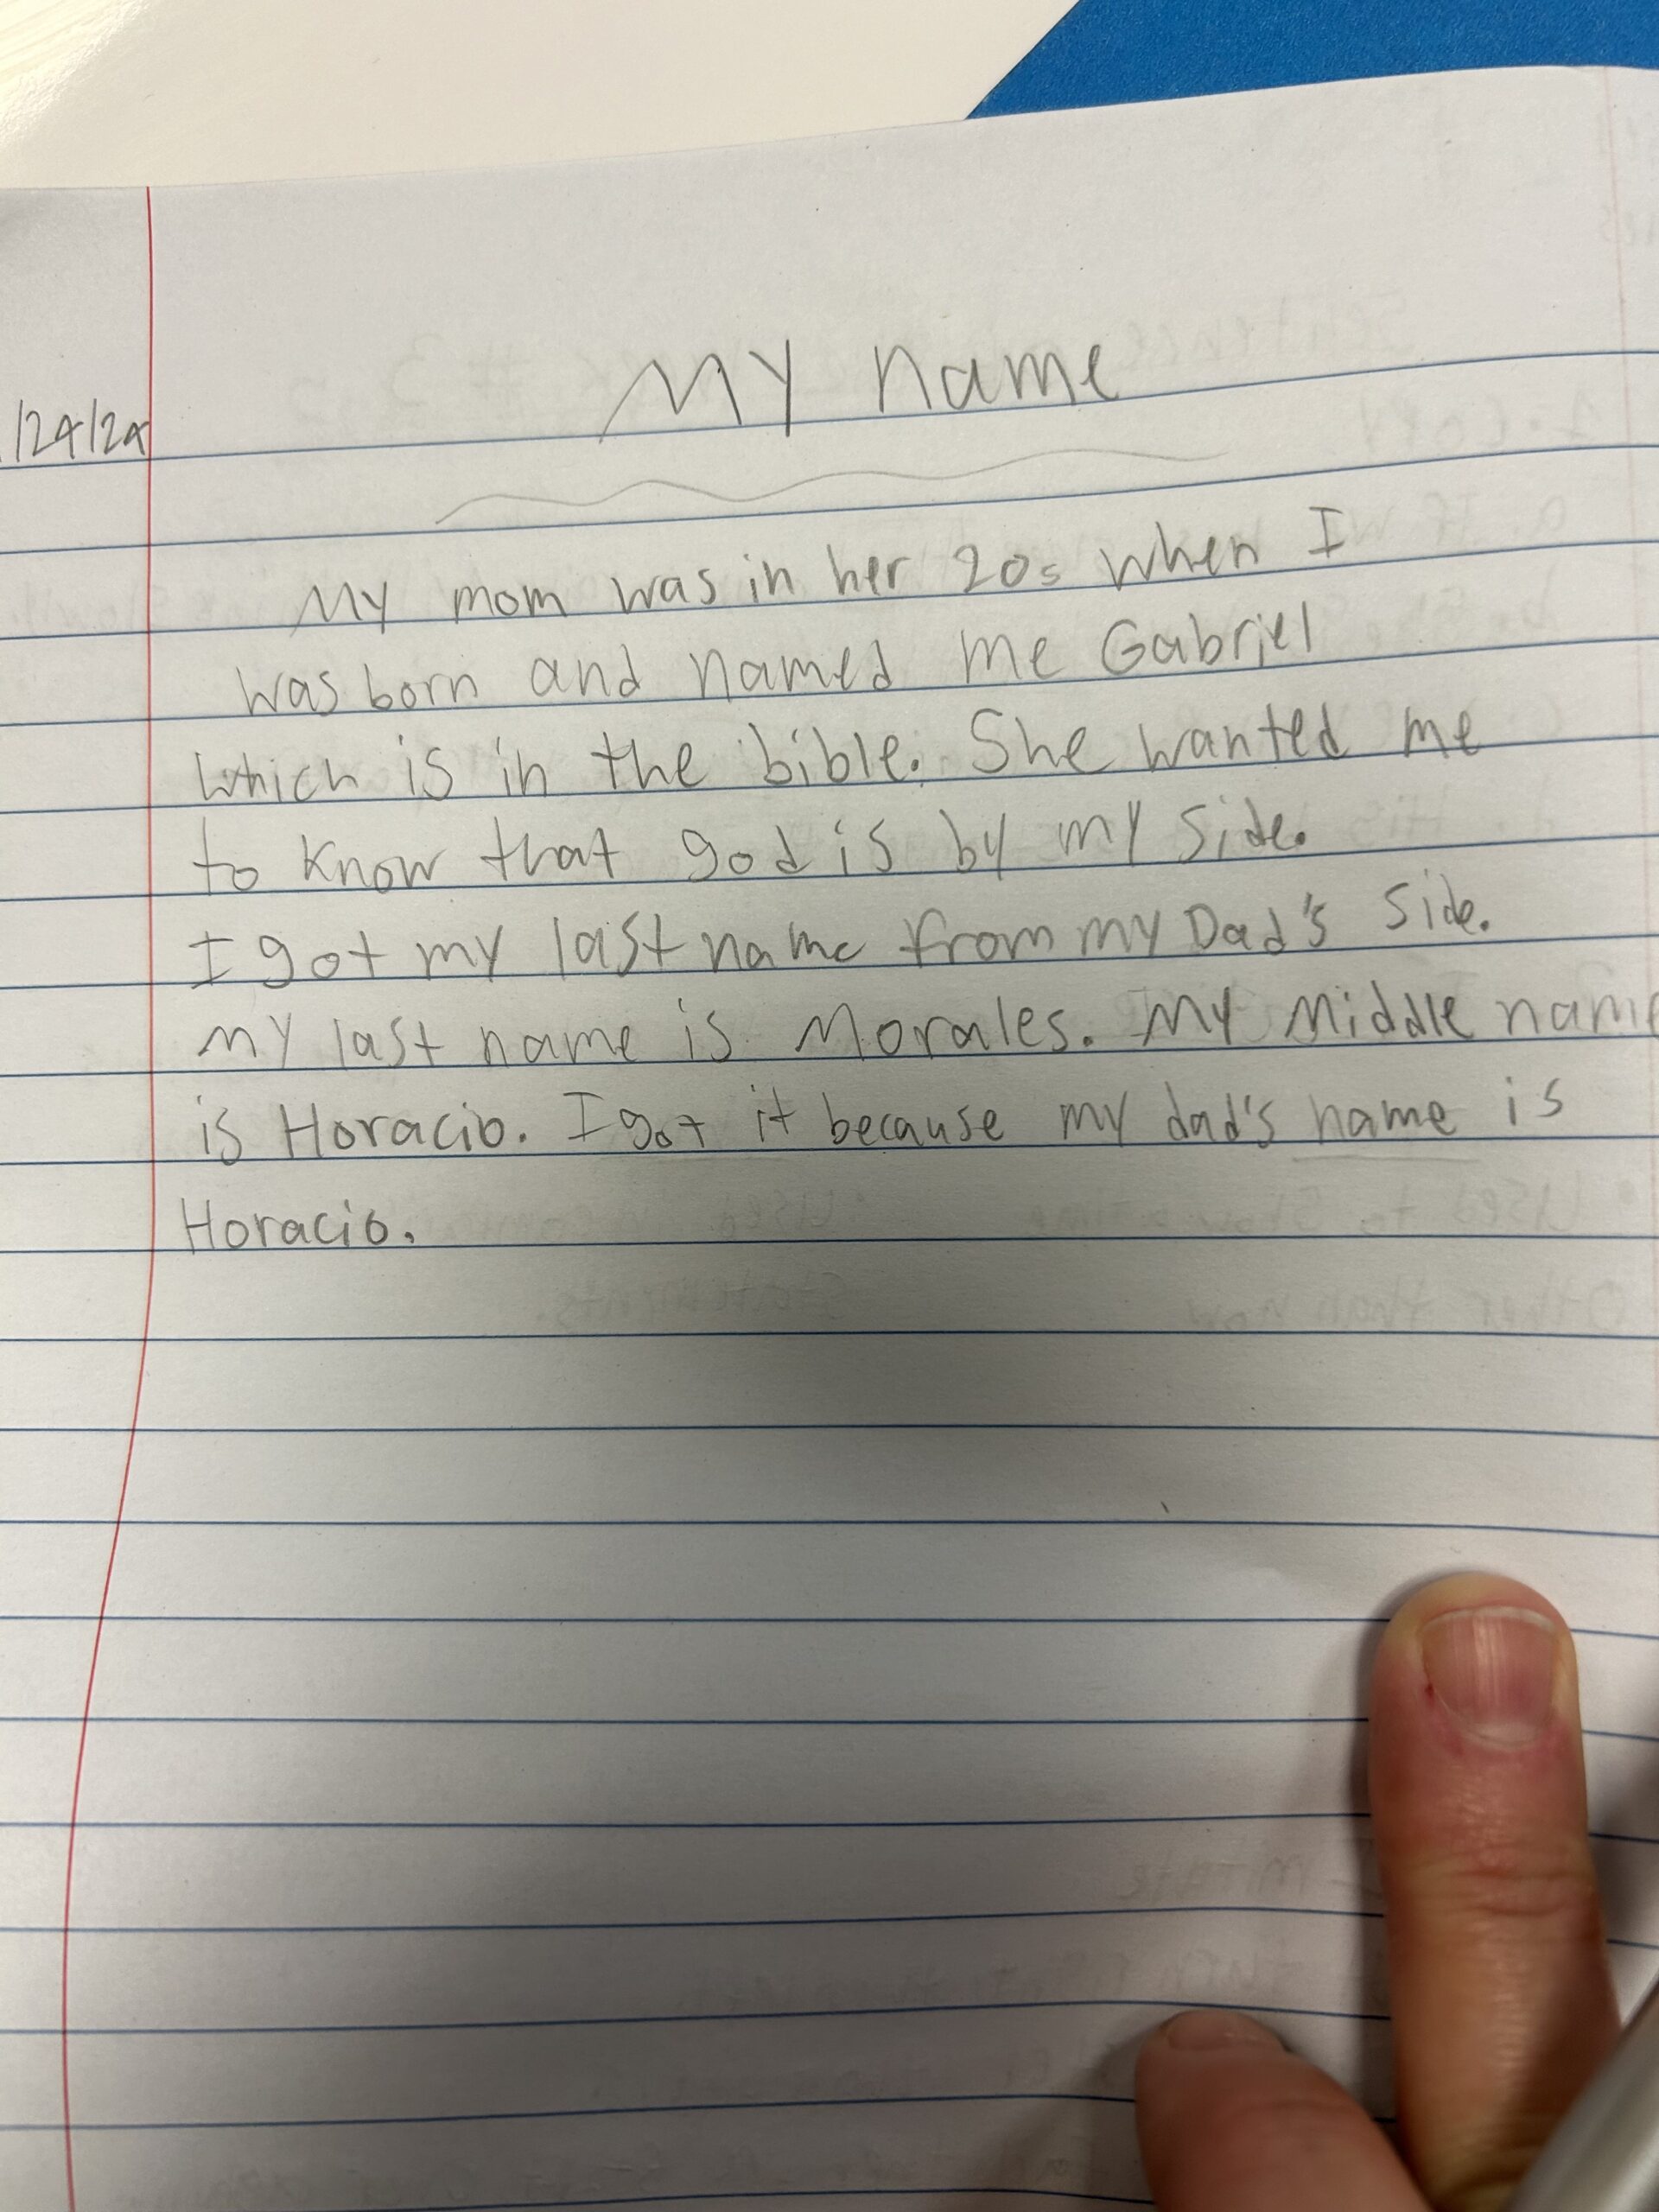 My name
/24/24
My mom was in her 20s when I
was born and named me Gabriel
which is in the bible. She wanted me
to know that god is by my side.
I got my last name from my Dad's side.
my last name is Morales. My Middle name
is Horacio. I got it because my dad's name is
Horacio.